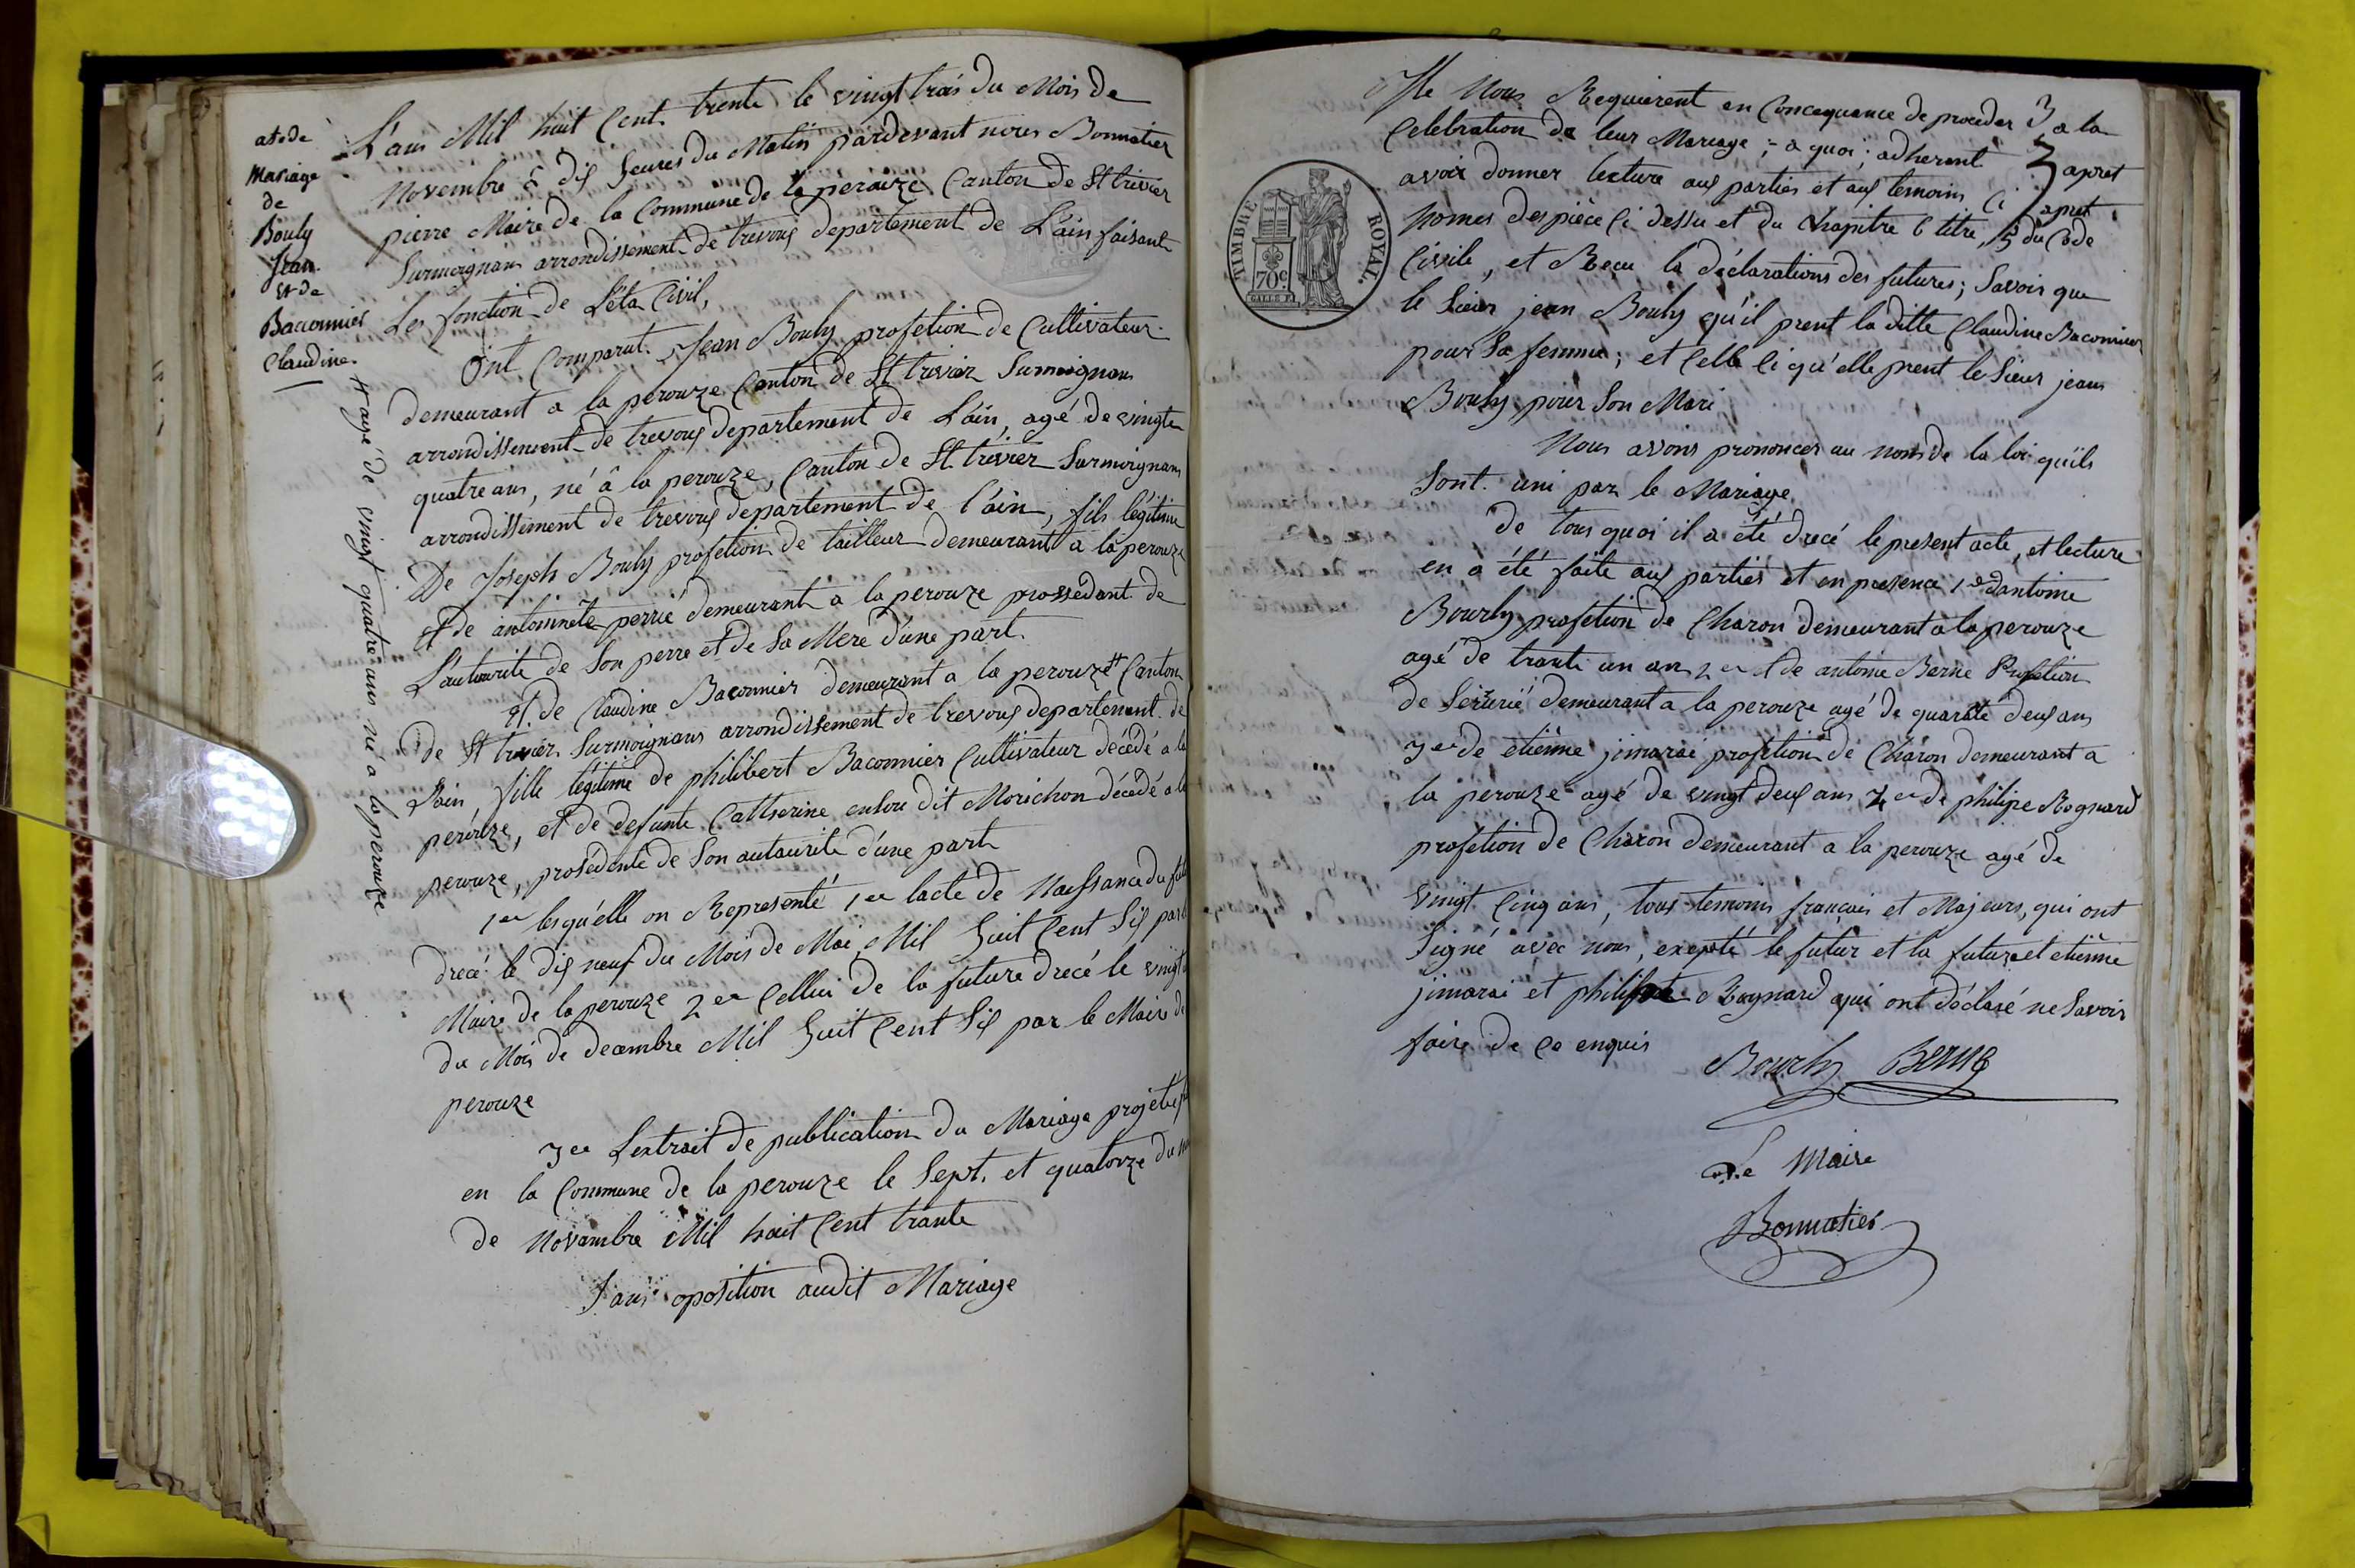 atsde
Mariage
de
Bouly
Jean
et de
Baconnier
Claudine
L'an Mil huit Cent trente le vingt trois du Mois de
Novembre à dis heures du Matin pardevant nous Bonnatier
pierre Maire de la Commune de la perouze Canton de St trivier
Surmoignans arrondissement de trevous departement de L'ain faisant
Les fonction de L'éta Civil,
Ont Comparut. Jean Bouly profetion de Cultivateur
demeurant a la perouze Canton de St trivier Surmoignans
arrondissement de trevous departement de Lain, agé de vingte
quatre ans, né â la perouze, Canton de St trivier Surmoignans
arrondissement de trevous departement de l'ain, fils légitime
De Joseph Bouly profetion de tailleur demeurant a la perouze
et de antoinnete perrié demeurant a la perouze prossedant de
L'autaurite de Son perre et de Sa Mere d'une part.
et. de Claudine Baconnier demeurant a la perouze # Canton
de St trivier Surmoignans arrondissement de trevous departement de
l'ain, fille légitime de philibert Baconnier Cultivateur decédé a la
perouze, et de defunte Catherine dit Morichon décédé a la
perouze, prosédente de Son autaurite d'une part
# agé de vingt quatre ans né a la perouze
1er lesqu'elle on Representé 1er lacte de Naissance du
drecé le dis neuf du Mois de Mai Mil huit Cent Sis par
Maire de la perouze 2er Cellui de la future drecé le vingt
du Mois de decembre Mil huit Cent Sis par le Maire de
perouze
3er Lextrait de publication du Mariage projété
en la Commune de la perouze le Sept. et quatorze du
de Novambre Mil huit Cent trante
Sans oposition audit Mariage
Ils Nous Requierent en Concequance de proceder 3 a la
Celebration de leur Mariage; a quoi; adherent 3 apret
avoir donner lecture aus parties et aus temoins Ci apret
nomes des pièce Ci dessu et du Chapitre 6 titre, 5 du Code
Civile, et Recu la déclarations des futures; Savoir que
le Sieur jean Bouly qu'il prent la ditte Claudine Baconnier
pour Sa femme; et Celle Ci qu'elle prent le Sieur jean
Bouly pour Son Mari
Nous avons prononcer au nom de la loi qu'ils
Sont. uni par le Mariage
de tous quoi il a été drecé le present acte, et lecture
en a été faite aus parties et en presence 1er dantoine
Bourly profetion de Charon demeurant a la perouze
agé de trante un an 2er de antoine Berne Profetion
de Serurié demeurant a la perouze agé de quarate deus ans
3er de etiénne jimarai profetion de Charon demeurant a
la perouze agé de vingt deus ans 4er de philipe Rognard
profetion de Charon demeurant a la perouze agé de
vingt Cinq ans, tous temoins français et Majeurs, qui ont
Signé avec nous, exepté le futur et la future et etiénne
jimarai et Rognard qui ont déclaré ne Savoir
faire de Ce enquis
Bourly Berne
Le Maire
Bonnatier
TIMBRE ROYAL.
70c